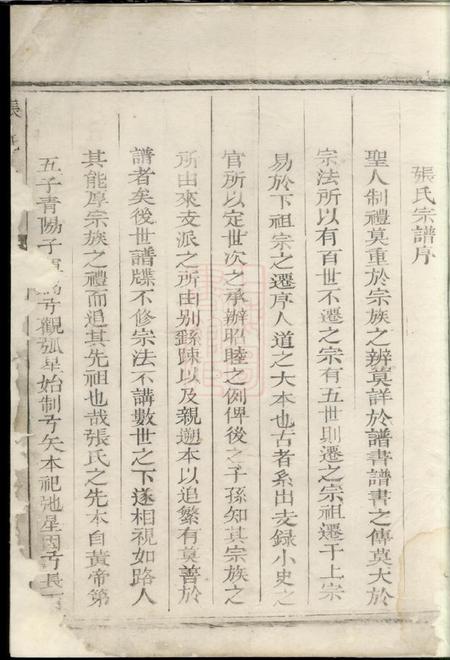 張氏宗譜序
聖人制禮莫重於宗族之辨莫詳於譜書譜書之傳莫大於
宗法所以有百世不遷之宗有五世則遷之宗祖遷于上宗
易於下祖宗之遷序人道之大本也古者系出支錄小史之
官所以定世次之承辦昭睦之例俾後之子孫知其宗族之
所由來支派之所由别繇踈以及親遡本以追繁有莫善於
譜者矣後世譜牒不修宗法不講數世之下遂相視如路人
其能厚宗族之禮而追其先祖也哉張氏之先本自黃帝第
五子青陽子為弓觀弧星始制弓矢本祀弧星因弓長
張